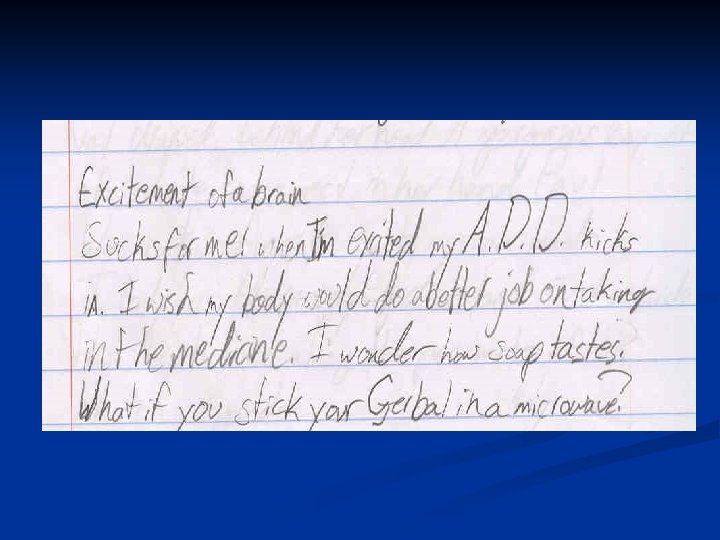 Excitement of a brain
Sucks for me! when I'm exited my A.D.D. kicks
in. I wish my body would do a better job on taking
in the medicine. I wonder how soap tastes.
What if you stick your Gerbal in a microwave?